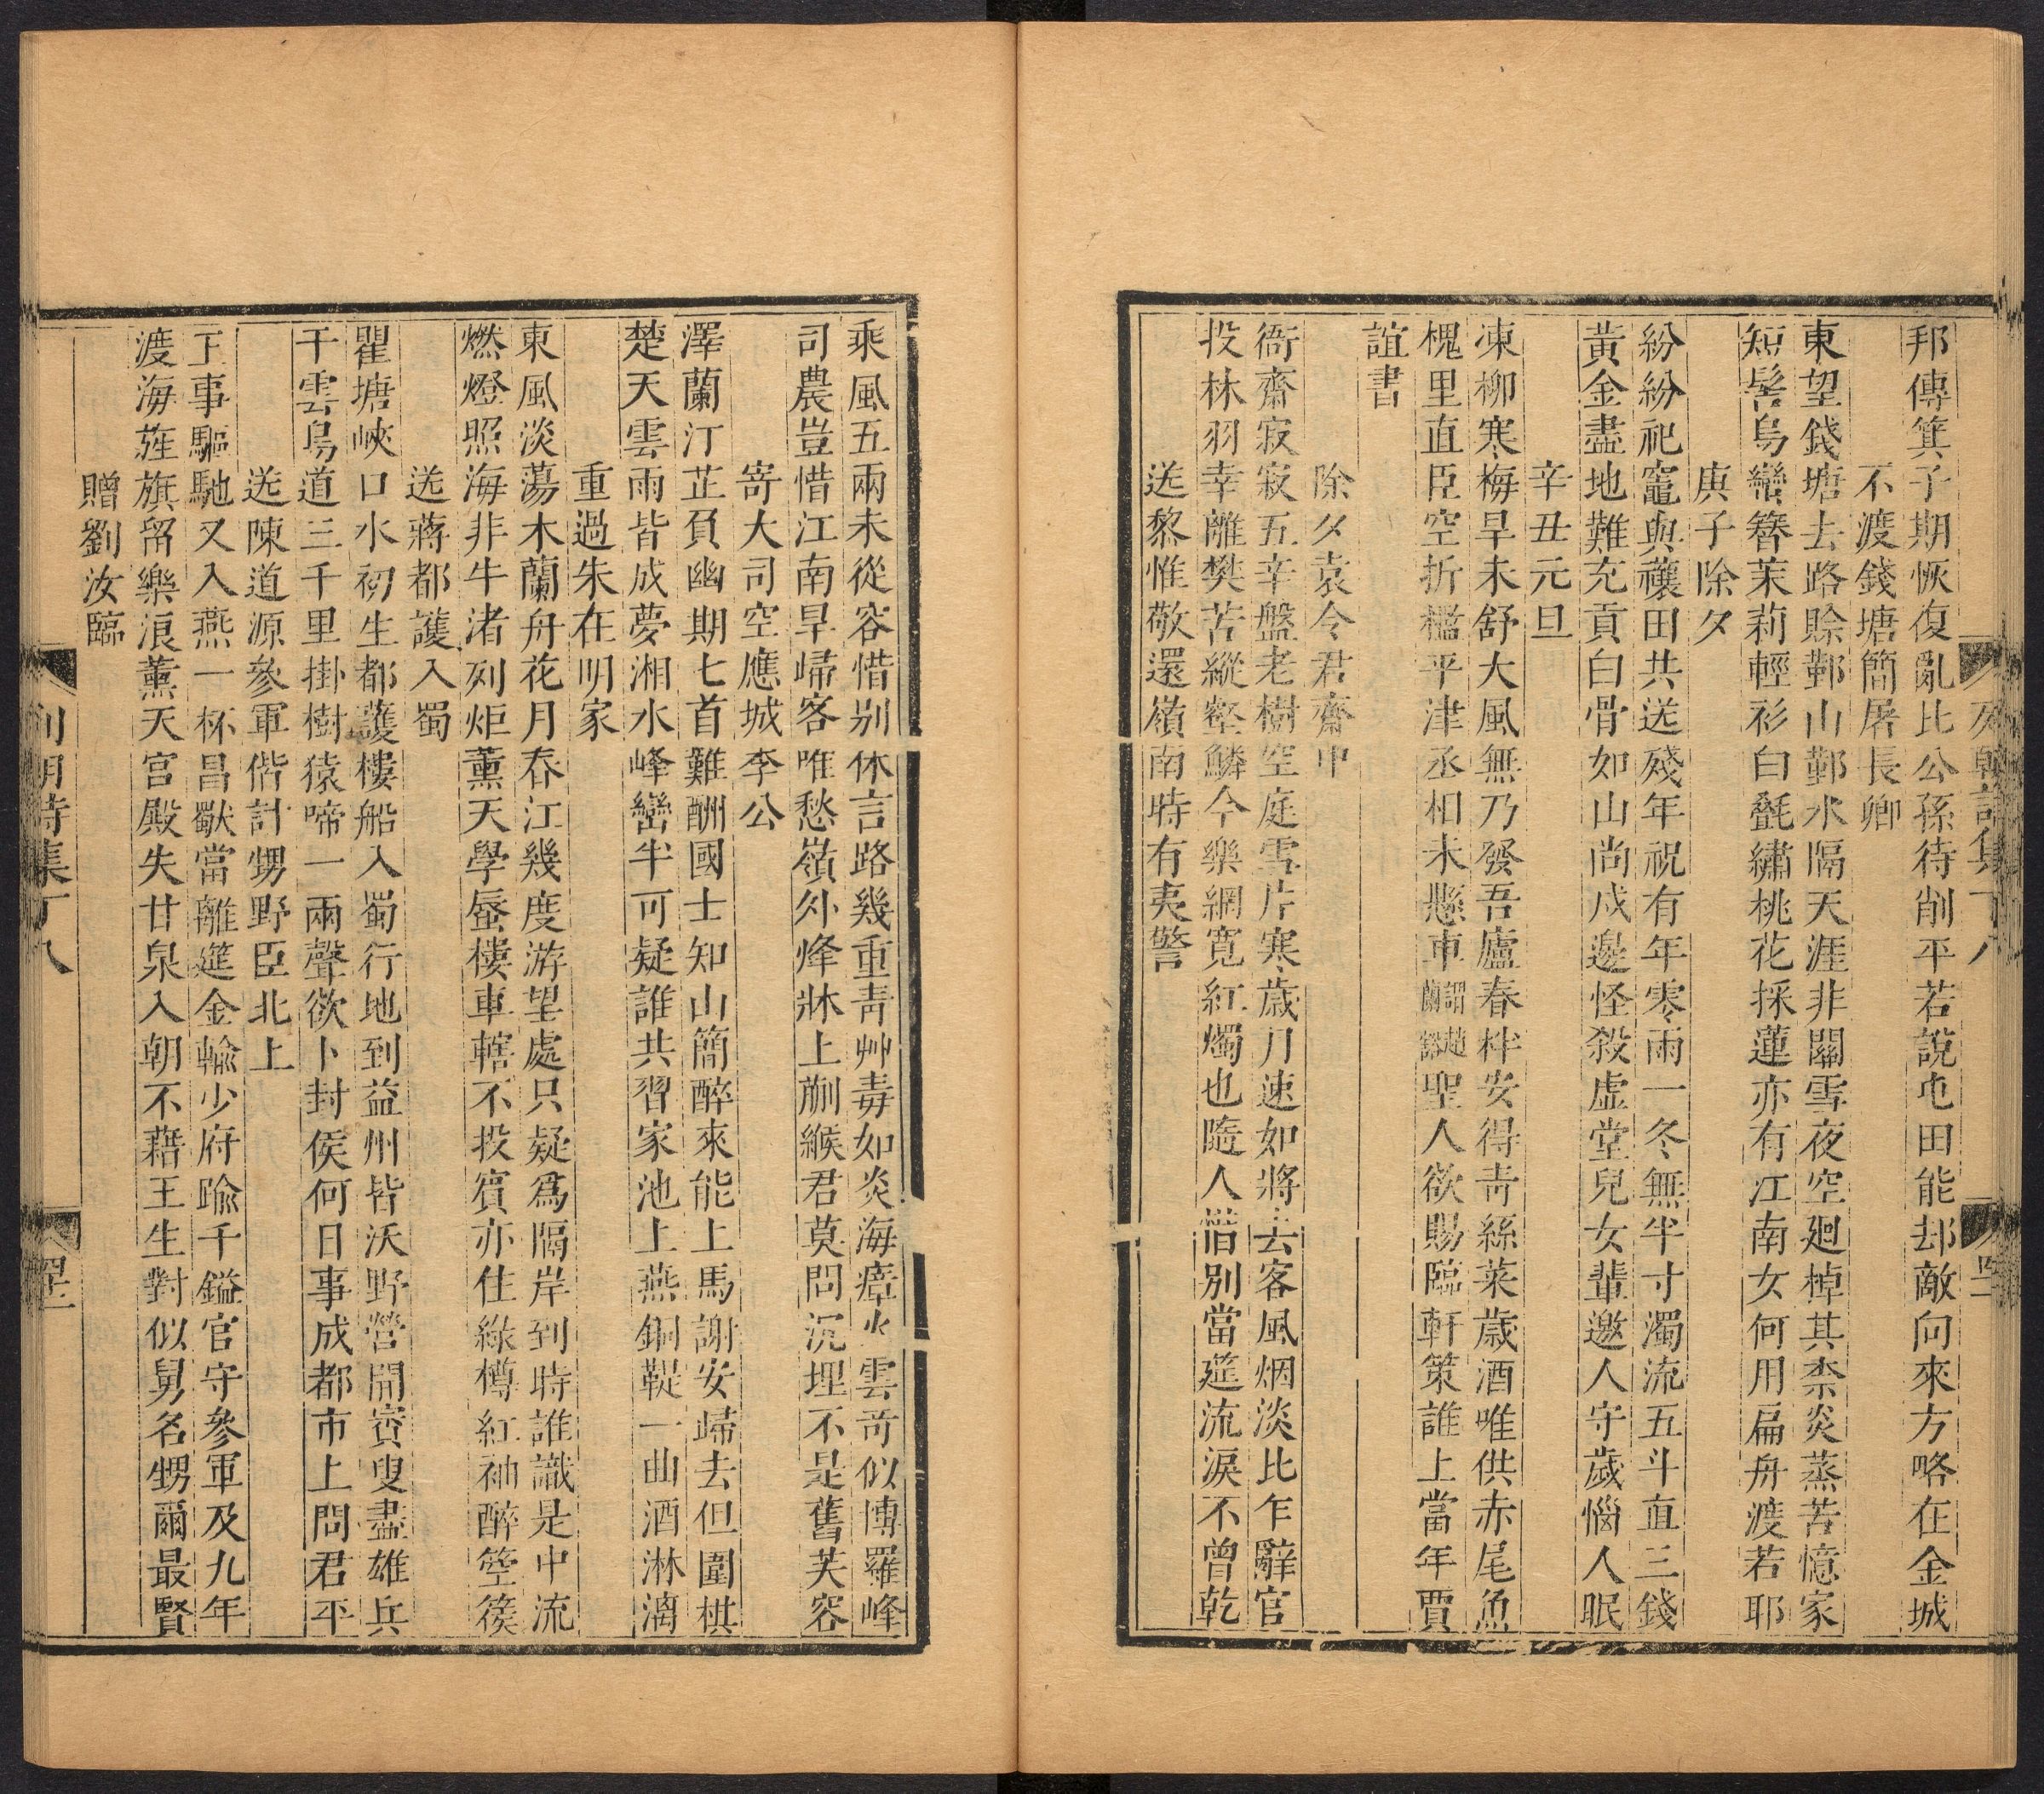 邦傳箕子期恢復亂比公孫待削平若說屯田能却敵向來方略在金城
不渡錢塘簡屠長卿
東望錢塘去路賒鄞山鄞水隔天涯非關雪夜空廻棹其柰炎蒸苦憶家
短髻烏巒簪茉莉輕衫白㲲繡桃花採蓮亦有江南女何用扁舟渡若耶
庚子除夕
紛紛祀竈與禳田共送殘年祝有年零雨一冬無半寸濁流五斗直三錢
黃金盡地難充貢白骨如山尚戍邊怪殺虛堂兒女輩邀人守歲惱人眠
辛丑元旦
凍柳寒梅早未舒大風無乃發吾廬春柈安得靑絲菜歲酒唯供赤尾魚
槐里直臣空折檻平津丞相未懸車謂趙蘭谿聖人欲賜臨軒策誰上當年賈
誼書
除夕袁令君齋中
衙齋寂寂五辛盤老樹空庭雪片寒歲月速如將去客風烟淡比乍辭官
投林羽幸離樊苦縱壑鱗今樂網寬紅燭也隨人惜别當筵流淚不曾乾
送黎惟敬還嶺南時有夷警
乘風五兩未從容惜别休言路幾重靑艸毒如炎海瘴火雲奇似博羅峰
司農豈惜江南早歸客唯愁嶺外烽牀上蒯緱君莫問沉埋不是舊芙容
寄大司空應城李公
澤蘭汀芷負幽期七首難酬國士知山簡醉來能上馬謝安歸去但圍棋
楚天雲雨皆成夢湘水峰巒半可疑誰共習家池上燕銅鞮一曲酒淋漓
重過朱在明家
東風淡蕩木蘭舟花月春江幾度游望處只疑爲隔岸到時誰識是中流
燃燈照海非牛渚列炬薰天學蜃樓車轄不投賓亦住綠樽紅袖醉箜篌
送蔣都護入蜀
瞿塘峽口水初生都護樓船入蜀行地到益州皆沃野營開賨叟盡雄兵
千雲鳥道三千里掛樹猿啼一兩聲欲卜封侯何日事成都市上問君平
送陳道源參軍偕計甥野臣北上
王事驅馳又入燕一杯昌歜當離筵金輸少府踰千鎰官守參軍及九年
渡海旌旗留樂浪薰天宮殿失甘泉入朝不藉王生對似舅名甥爾最賢
贈劉汝臨
列朝詩集丁八